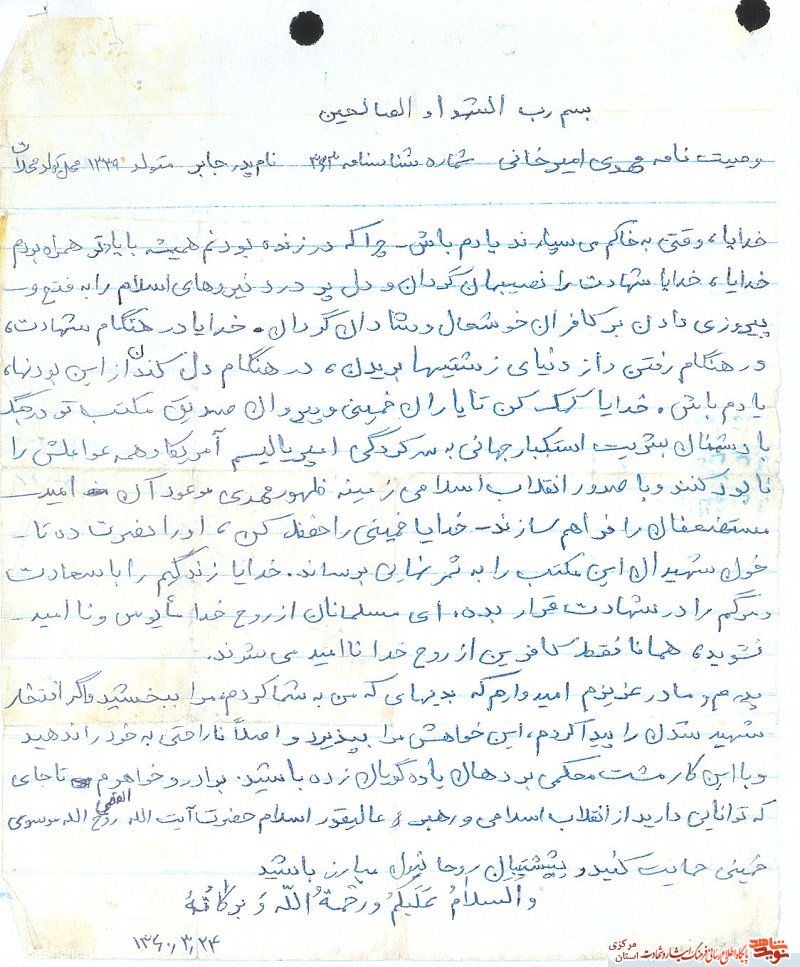 بسم رب الشهداء و الصالحین
وصیت نامه مهدی امیرخانی شماره شناسنامه نام پدر جابر متولد ۱۳۳۹ محل تولد محلات
خدایا، وقتی به خاکم می سپارند یادم باش - چرا که در زنده بودنم همیشه با یاد تو همراه بودم
خدایا، خدایا شهادت را نصیبمان گردان و دل پر درد نیروهای اسلام را به فتح و
پیروزی دادن بر کافران خوشحال و شادان گردان. خدایا در هنگام شهادت،
در هنگام رفتن و از دنیای زشتیها بریدن، در هنگام دل کندن از این بودنها،
یادم باش. خدایا کمک کن تا یاران خمینی و پیروان صدیق مکتب تو در جنگ
با دشمنان بشریت استکبار جهانی به سرکردگی امپریالیسم آمریکا و همه عواملش را
نابود کنند و با صدور انقلاب اسلامی زمینه ظهور مهدی موعود آن امید
مستضعفان را فراهم سازند - خدایا خمینی را حفظ کن، او را نصرت ده تا
خون شهیدان این مکتب را به ثمر نهایی برساند. خدایا زندگیم را با سعادت
و مرگم را در شهادت قرار بده. ای مسلمانان از روح خدا مأیوس و نا امید
نشوید، همانا فقط کافرین از روح خدا نا امید می شوند.
پدرم و مادر عزیزم امیدوارم که بدیهای که من به شما کردم، مرا ببخشید و اگر افتخار
شهید شدن را پیدا کردم، این خواهش مرا بپذیرد و اصلاً ناراحتی به خود راندهید
و با این کار مشت محکمی بر دهان یاوه گویان زده باشید. برادر و خواهرم تا جای
که توانایی دارید از انقلاب اسلامی و رهبر عالیقدر اسلام حضرت آیت الله العظمی روح الله موسوی
خمینی حمایت کنید و پشتیبان روحانیون مبارز باشید
والسلامُ عَلَیکُم وَ رَحْمةُ اللّه وَ بَرَکاتُهُ
۱۳۶۰,۳,۲۴
نوید شاهد
پایگاه اطلاع رسانی فرهنگ ایثار و شهادت
مرکزی
استان